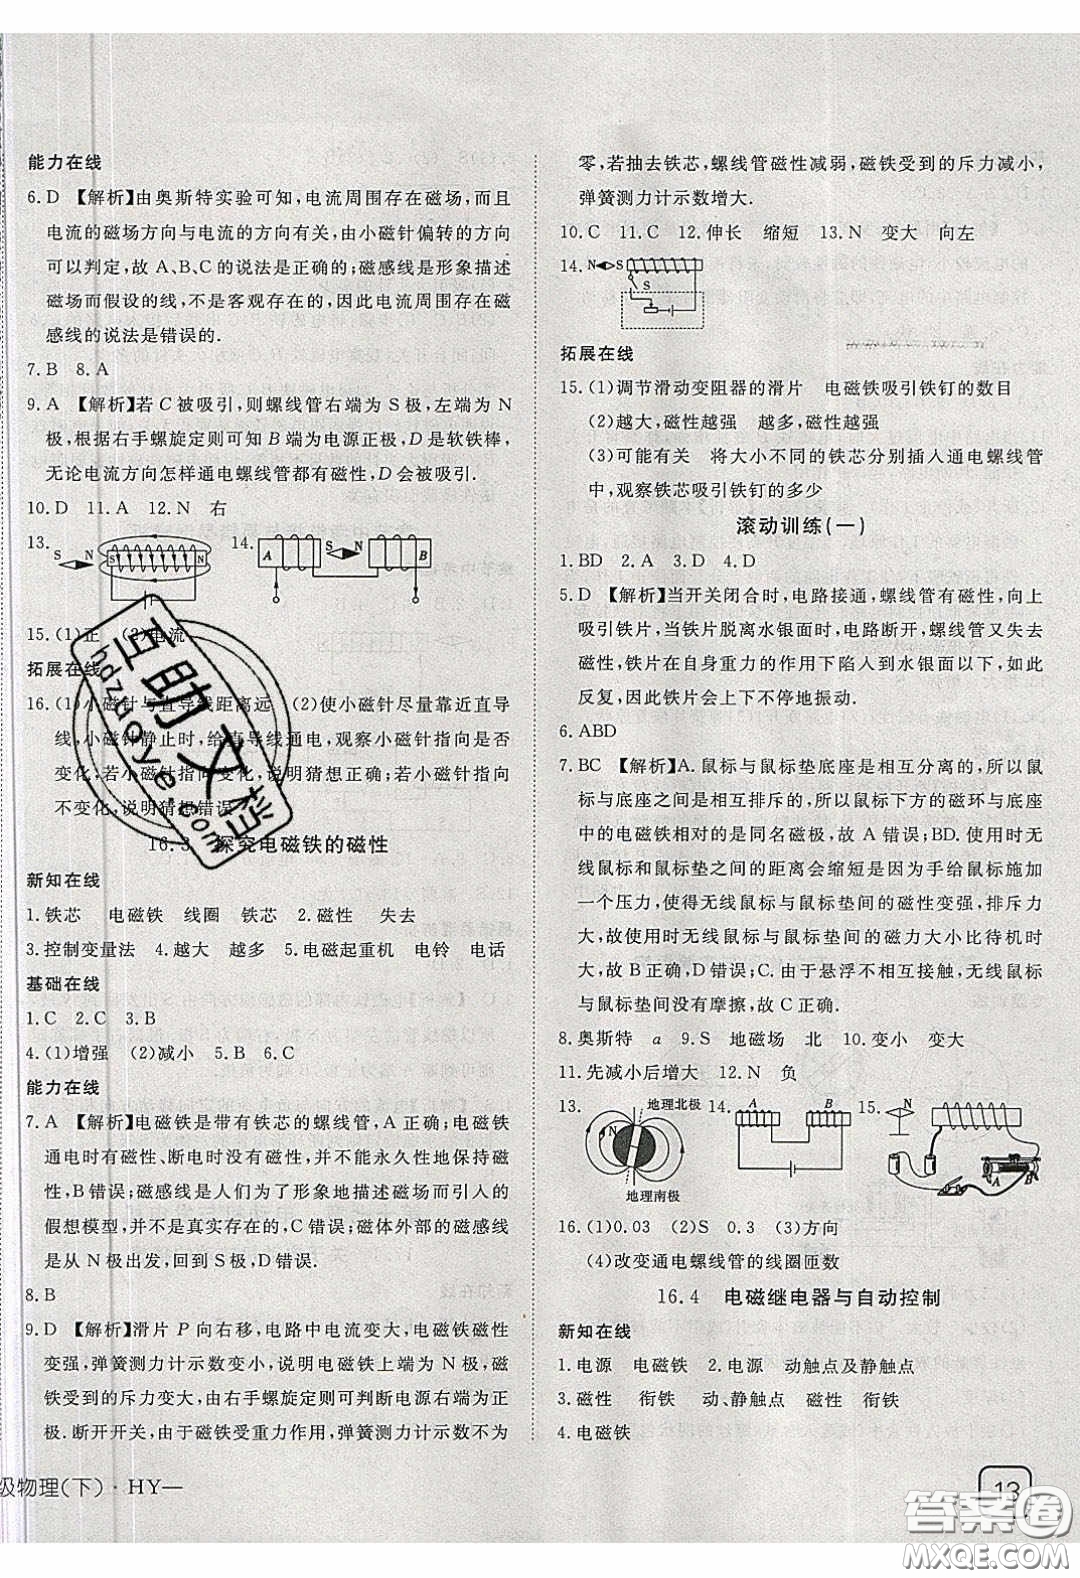 能力在线
6. D 【解析】由奥斯特实验可知，电流周围存在磁场，而且
电流的磁场方向与电流的方向有关，由小磁针偏转的方向
可以判定，故 A、B、C 的说法是正确的；磁感线是形象描述
磁场而假设的线，不是客观存在的，因此电流周围存在磁
感线的说法是错误的.
7. B 8. A
9. A 【解析】若 C 被吸引，则螺线管右端为 S 极，左端为 N
极，根据右手螺旋定则可知 B 端为电源正极，D 是软铁棒，
无论电流方向怎样通电螺线管都有磁性，D 会被吸引.
10. D 11. A 12. N 右
13. S N S N 14. A S N B
15. (1)正 (2)电流
拓展在线
16. (1)小磁针与直导线距离远 (2)使小磁针尽量靠近直导
线，小磁针静止时，给直导线通电，观察小磁针指向是否
变化，若小磁针指向变化，说明猜想正确；若小磁针指向
不变化，说明猜想错误
16.3 探究电磁铁的磁性
新知在线
1. 铁芯 电磁铁 线圈 铁芯 2. 磁性 失去
3. 控制变量法 4. 越大 越多 5. 电磁起重机 电铃 电话
基础在线
1. C 2. C 3. B
4. (1)增强 (2)减小 5. B 6. C
能力在线
7. A 【解析】电磁铁是带有铁芯的螺线管，A 正确；电磁铁
通电时有磁性、断电时没有磁性，并不能永久性地保持磁
性，B 错误；磁感线是人们为了形象地描述磁场而引入的
假想模型，并不是真实存在的，C 错误；磁体外部的磁感线
是从 N 极出发，回到 S 极，D 错误.
8. B
9. D 【解析】滑片 P 向右移，电路中电流变大，电磁铁磁性
变强，弹簧测力计示数变小，说明电磁铁上端为 N 极，磁
铁受到的斥力变大，由右手螺旋定则可判断电源右端为正
极；断开开关，由于磁铁受重力作用，弹簧测力计示数不为
级物理(下)·HY—
零，若抽去铁芯，螺线管磁性减弱，磁铁受到的斥力减小，
弹簧测力计示数增大.
10. C 11. C 12. 伸长 缩短 13. N 变大 向左
14. N S S
拓展在线
15. (1)调节滑动变阻器的滑片 电磁铁吸引铁钉的数目
(2)越大，磁性越强 越多，磁性越强
(3)可能有关 将大小不同的铁芯分别插入通电螺线管
中，观察铁芯吸引铁钉的多少
滚动训练(一)
1. BD 2. A 3. D 4. D
5. D 【解析】当开关闭合时，电路接通，螺线管有磁性，向上
吸引铁片；当铁片脱离水银面时，电路断开，螺线管又失去
磁性，铁片在自身重力的作用下陷入到水银面以下，如此
反复，因此铁片会上下不停地振动.
6. ABD
7. BC 【解析】A. 鼠标与鼠标垫底座是相互分离的，所以鼠
标与底座之间是相互排斥的，所以鼠标下方的磁环与底座
中的电磁铁相对的是同名磁极，故 A 错误；BD. 使用时无
线鼠标和鼠标垫之间的距离会缩短是因为手给鼠标施加
一个压力，使得无线鼠标与鼠标垫间的磁性变强，排斥力
变大. 故使用时无线鼠标与鼠标垫间的磁力大小比待机时
大，故 B 正确，D 错误；C. 由于悬浮不相互接触，无线鼠标
与鼠标垫间没有摩擦，故 C 正确.
8. 奥斯特 a 9. S 地磁场 北 10. 变小 变大
11. 先减小后增大 12. N 负
13. 地理北极 地理南极 14. A B 15. N A B
16. (1)0.03 (2)S 0.3 (3)方向
(4)改变通电螺线管的线圈匝数
16.4 电磁继电器与自动控制
新知在线
1. 电源 电磁铁 2. 电源 动触点及静触点
3. 磁性 衔铁 动、静触点 磁性 衔铁
4. 电磁铁
13
互助文档
hdzuoye.com
答案圈
MXQE.COM